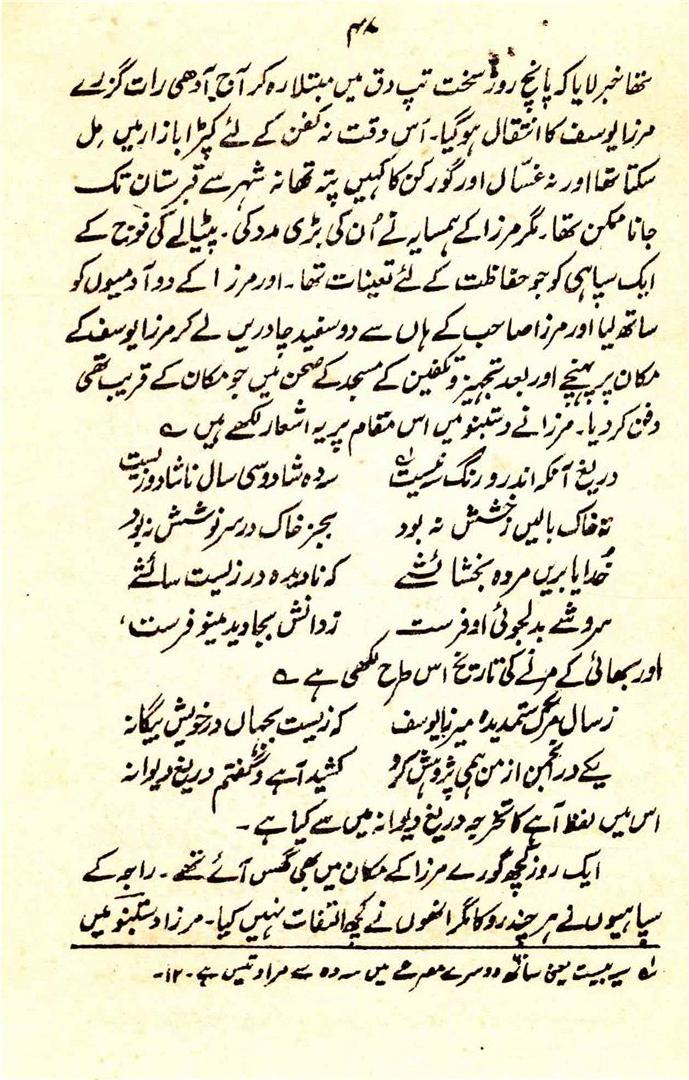 ۳۸
تھا خبر لایا کہ پانچ روز سخت تپ دق میں مبتلا رہ کر آج آدھی رات گزرے
مرزا یوسف کا انتقال ہوگیا۔ اس وقت نہ کفن کے لئے کپڑا بازار میں مِل
سکتا تھا اور نہ غسّال اور گورکن کا کہیں پتہ تھا نہ شہر سے قبرستان تک
جانا ممکن تھا۔ مگر مرزا کے ہمسایہ نے اُن کی بڑی مدد کی۔ پٹیالے کی فوج کے
ایک سپاہی کو جو حفاظت کے لئے تعینات تھا۔ اور مرزا کے دو آدمیوں کو
ساتھ لیا اور مرزا صاحب کے ہاں سے دو سفید چادریں لے کر مرزا یوسف کے
مکان پر پہنچے اور بعد تجہیز و تکفین کے مسجد کے صحن میں جو مکان کے قریب تھی
دفن کر دیا۔ مرزا نے دستنبو میں اس مقام پر یہ اشعار لکھے ہیں ؎
دریغ آنکہ اندر درنگ سہ بیست سہ دہ شاد و سی سال ناشاد زیست
تہ خاک بالیں ز خشتش نہ بود بجز خاک در سرنوشتش نہ بود
خُدایا بریں مردہ بخشائشے کہ نادیدہ در زیست سائشے
سروشے بدلجوئی او فرست روانش بجاوید مینو فرست،
اور بھائی کے مرنے کی تاریخ اس طرح لکھی ہے ؎
ز سال مرگ ستمدیدہ میرزا یوسف کہ زیست بجہاں در خویش بیگانہ
یکے در انجمن از من ہمی پژوہش کرد کشید آہے و گفتم دریغ دیوانہ
اس میں لفظ آہے کا تخرجہ دریغ دیوانہ میں سے کیا ہے۔
ایک روز کچھ گورے مرزا کے مکان میں بھی گھس آئے تھے۔ راجہ کے
سپاہیوں نے ہر چند روکا مگر انھوں نے کچھ التفات نہیں کیا۔ مرزا دستنبو میں
لہ سہ بیست یعنی ساٹھ دوسرے مصرعے میں سہ دہ سے مراد تیس ہے۔ ۱۲۔